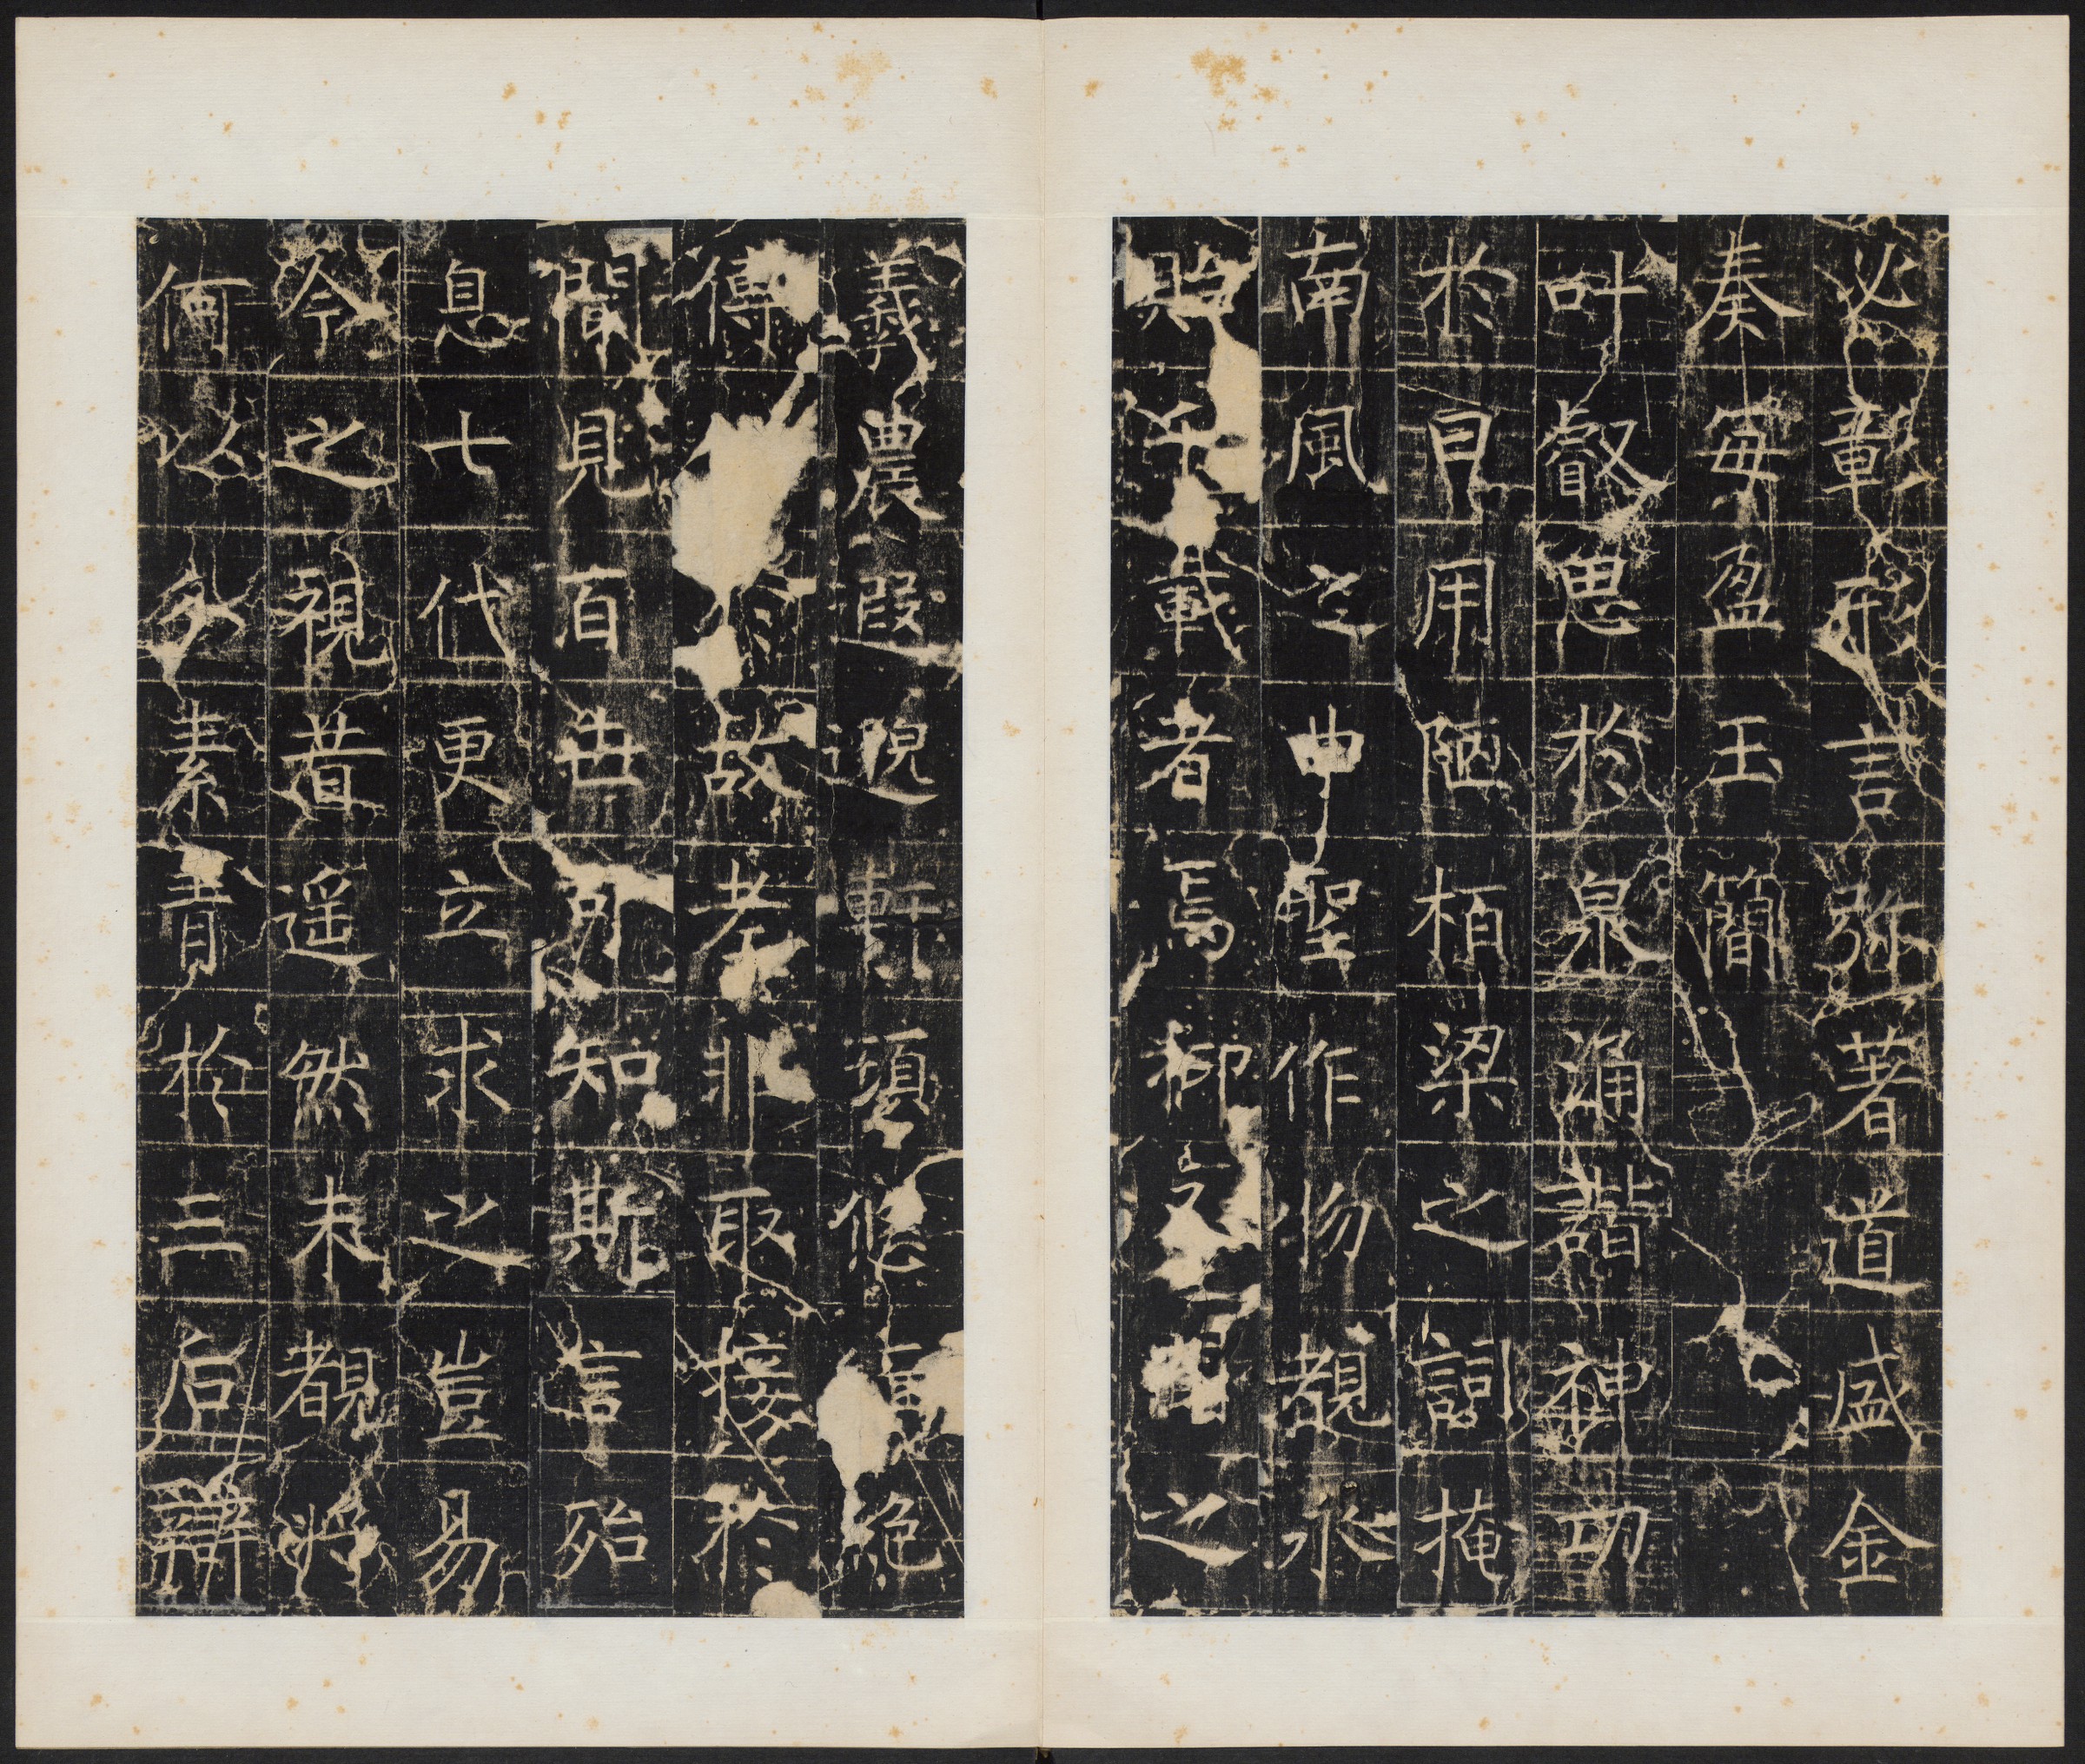 必彰形言弥著道盛金
奏每盈玉簡
叶叡思於泉涌諧神功
於日用陋栢梁之詞掩
南風之曲聖作物覩永
貽千載者焉柳谷之
羲農遐邈軒頊悠絶
傳故老非取接於
聞見百世可知斯言殆
息七代更立求之豈易
今之視昔遥然未覩將
何以多素責於三后辯